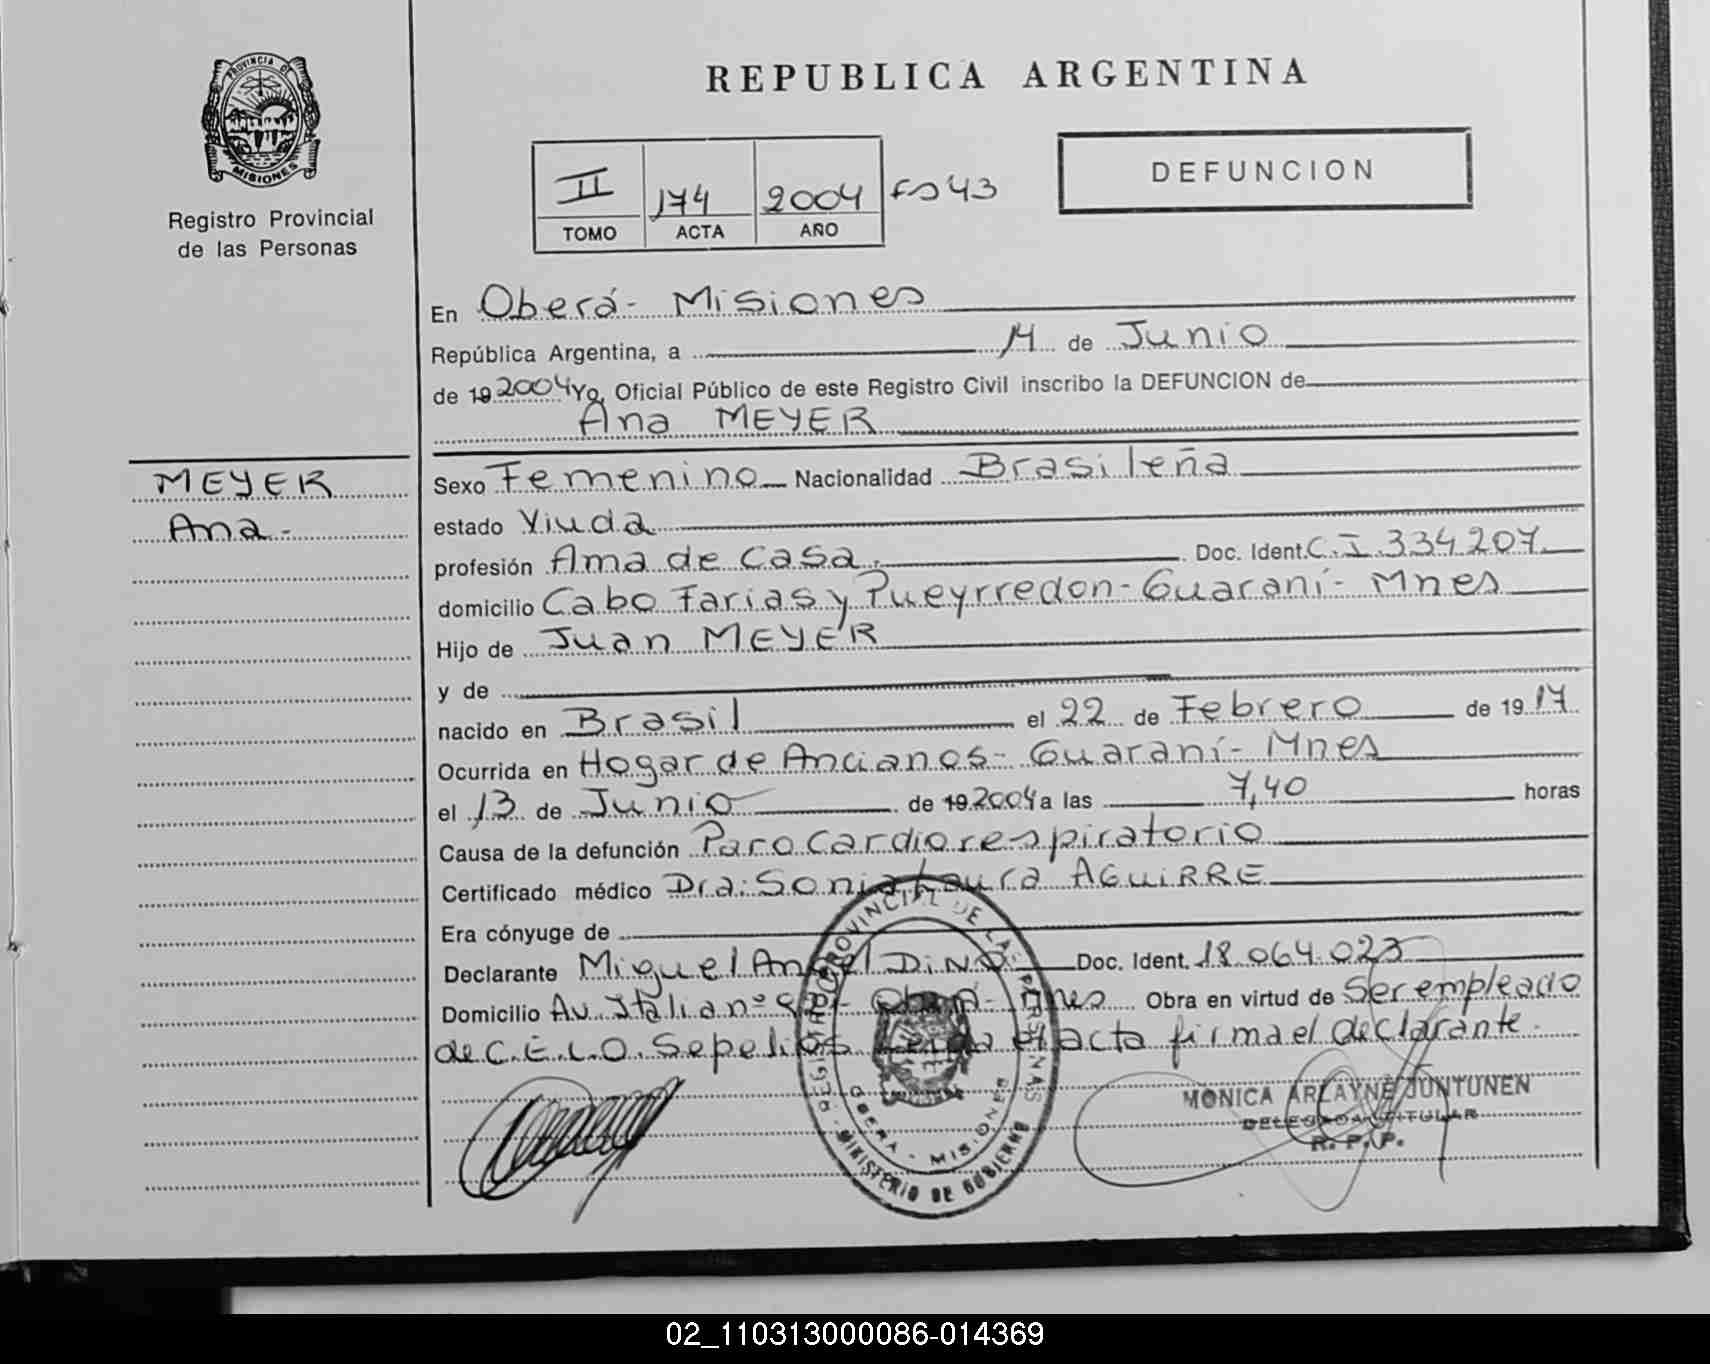 PROVINCIA DE
MISIONES
Registro Provincial
de las Personas
REPUBLICA ARGENTINA
DEFUNCION
II 174 2004 Fº 43
TOMO ACTA AÑO
En Oberá - Misiones
República Argentina, a 14 de Junio
de 19 2004 Yo, Oficial Público de este Registro Civil inscribo la DEFUNCION de
Ana MEYER
MEYER
Ana -
Sexo Femenino Nacionalidad Brasileña
estado Viuda
profesión Ama de Casa. Doc. Ident. C.I. 334.207
domicilio Cabo Farias y Pueyrredon - Guaraní - Mnes
Hijo de Juan MEYER
y de
nacido en Brasil el 22 de Febrero de 19 17
Ocurrida en Hogar de Ancianos - Guaraní - Mnes
el 13 de Junio de 19 2004 a las 7,40 horas
Causa de la defunción Paro Cardiorespiratorio
Certificado médico Dra: Sonia Laura AGUIRRE
Era cónyuge de
Declarante Miguel Angel DINO Doc. Ident. 18.064.023
Domicilio Av. Italia nº Oberá - Mnes Obra en virtud de Ser empleado
de C.E.L.O. Sepelios Leída el acta firma el declarante.
REGISTRO PROVINCIAL DE LAS PERSONAS
OBERA - MISIONES
MINISTERIO DE GOBIERNO
MONICA ARLAYNE JUNTUNEN
DELEGADA TITULAR
R. P. P.
02_110313000086-014369